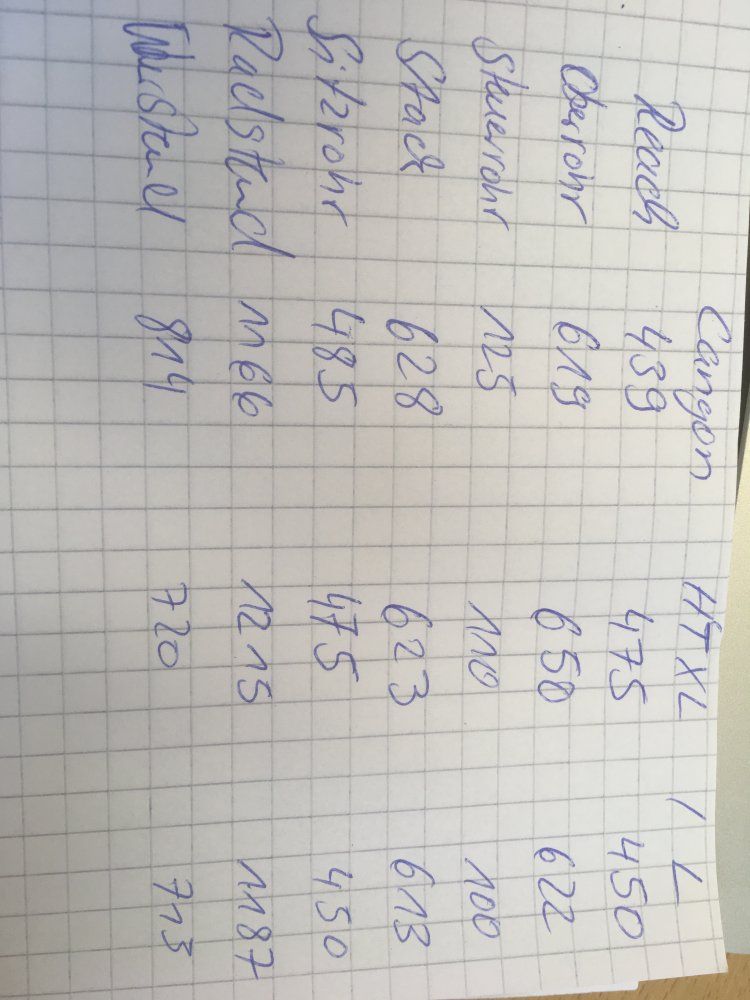 Canyon HT XL / L
Reach 439 475 450
Oberrohr 619 650 622
Steuerrohr 125 110 100
Stack 628 623 613
Sitzrohr 485 475 450
Radstand 1166 1215 1187
814 720 713